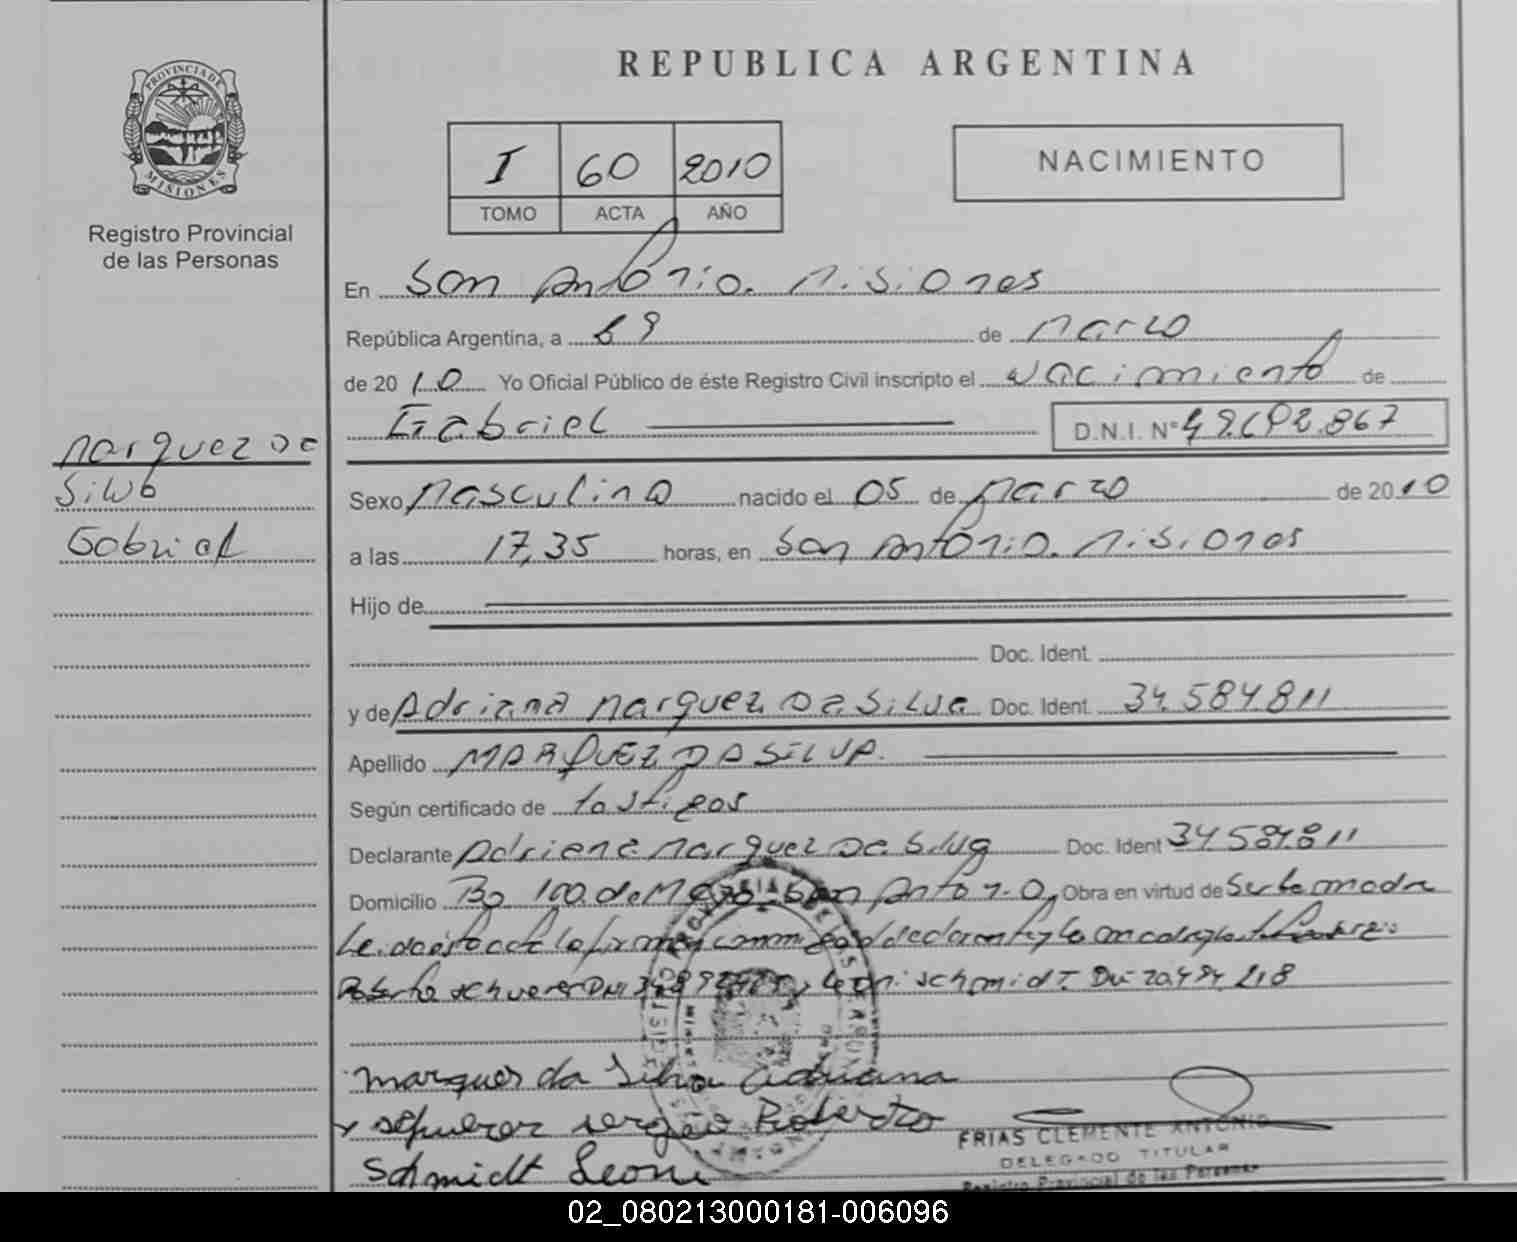 REPUBLICA ARGENTINA
PROVINCIA DE
MISIONES
Registro Provincial
de las Personas
I 60 2010
TOMO ACTA AÑO
NACIMIENTO
En San Antonio. Misiones
República Argentina, a 09 de Marzo
de 2010 Yo Oficial Público de éste Registro Civil inscripto el Nacimiento de
Gabriel D.N.I. Nº
Marquez Da
Silva
Gabriel
Sexo Masculino nacido el 05 de Marzo de 2010
a las 17,35 horas, en San Antonio. Misiones
Hijo de
Doc. Ident.
y de Adriana Marquez Da Silva Doc. Ident. 34.584.811
Apellido MARQUEZ DA SILVA.
Según certificado de testigos
Declarante Adriana Marquez Da Silva Doc. Ident 34584811
Domicilio Bo 100. de Mayo San Antonio, Obra en virtud de ser la madre
Leida esta acta la firman conmigo
Roberto y Leoni Schmidt. 218
Marques da Silva Adriana
Sergio Roberto
Schmidt Leoni
FRIAS CLEMENTE ANTONIO
DELEGADO TITULAR
Registro Provincial de las Personas
02_080213000181-006096